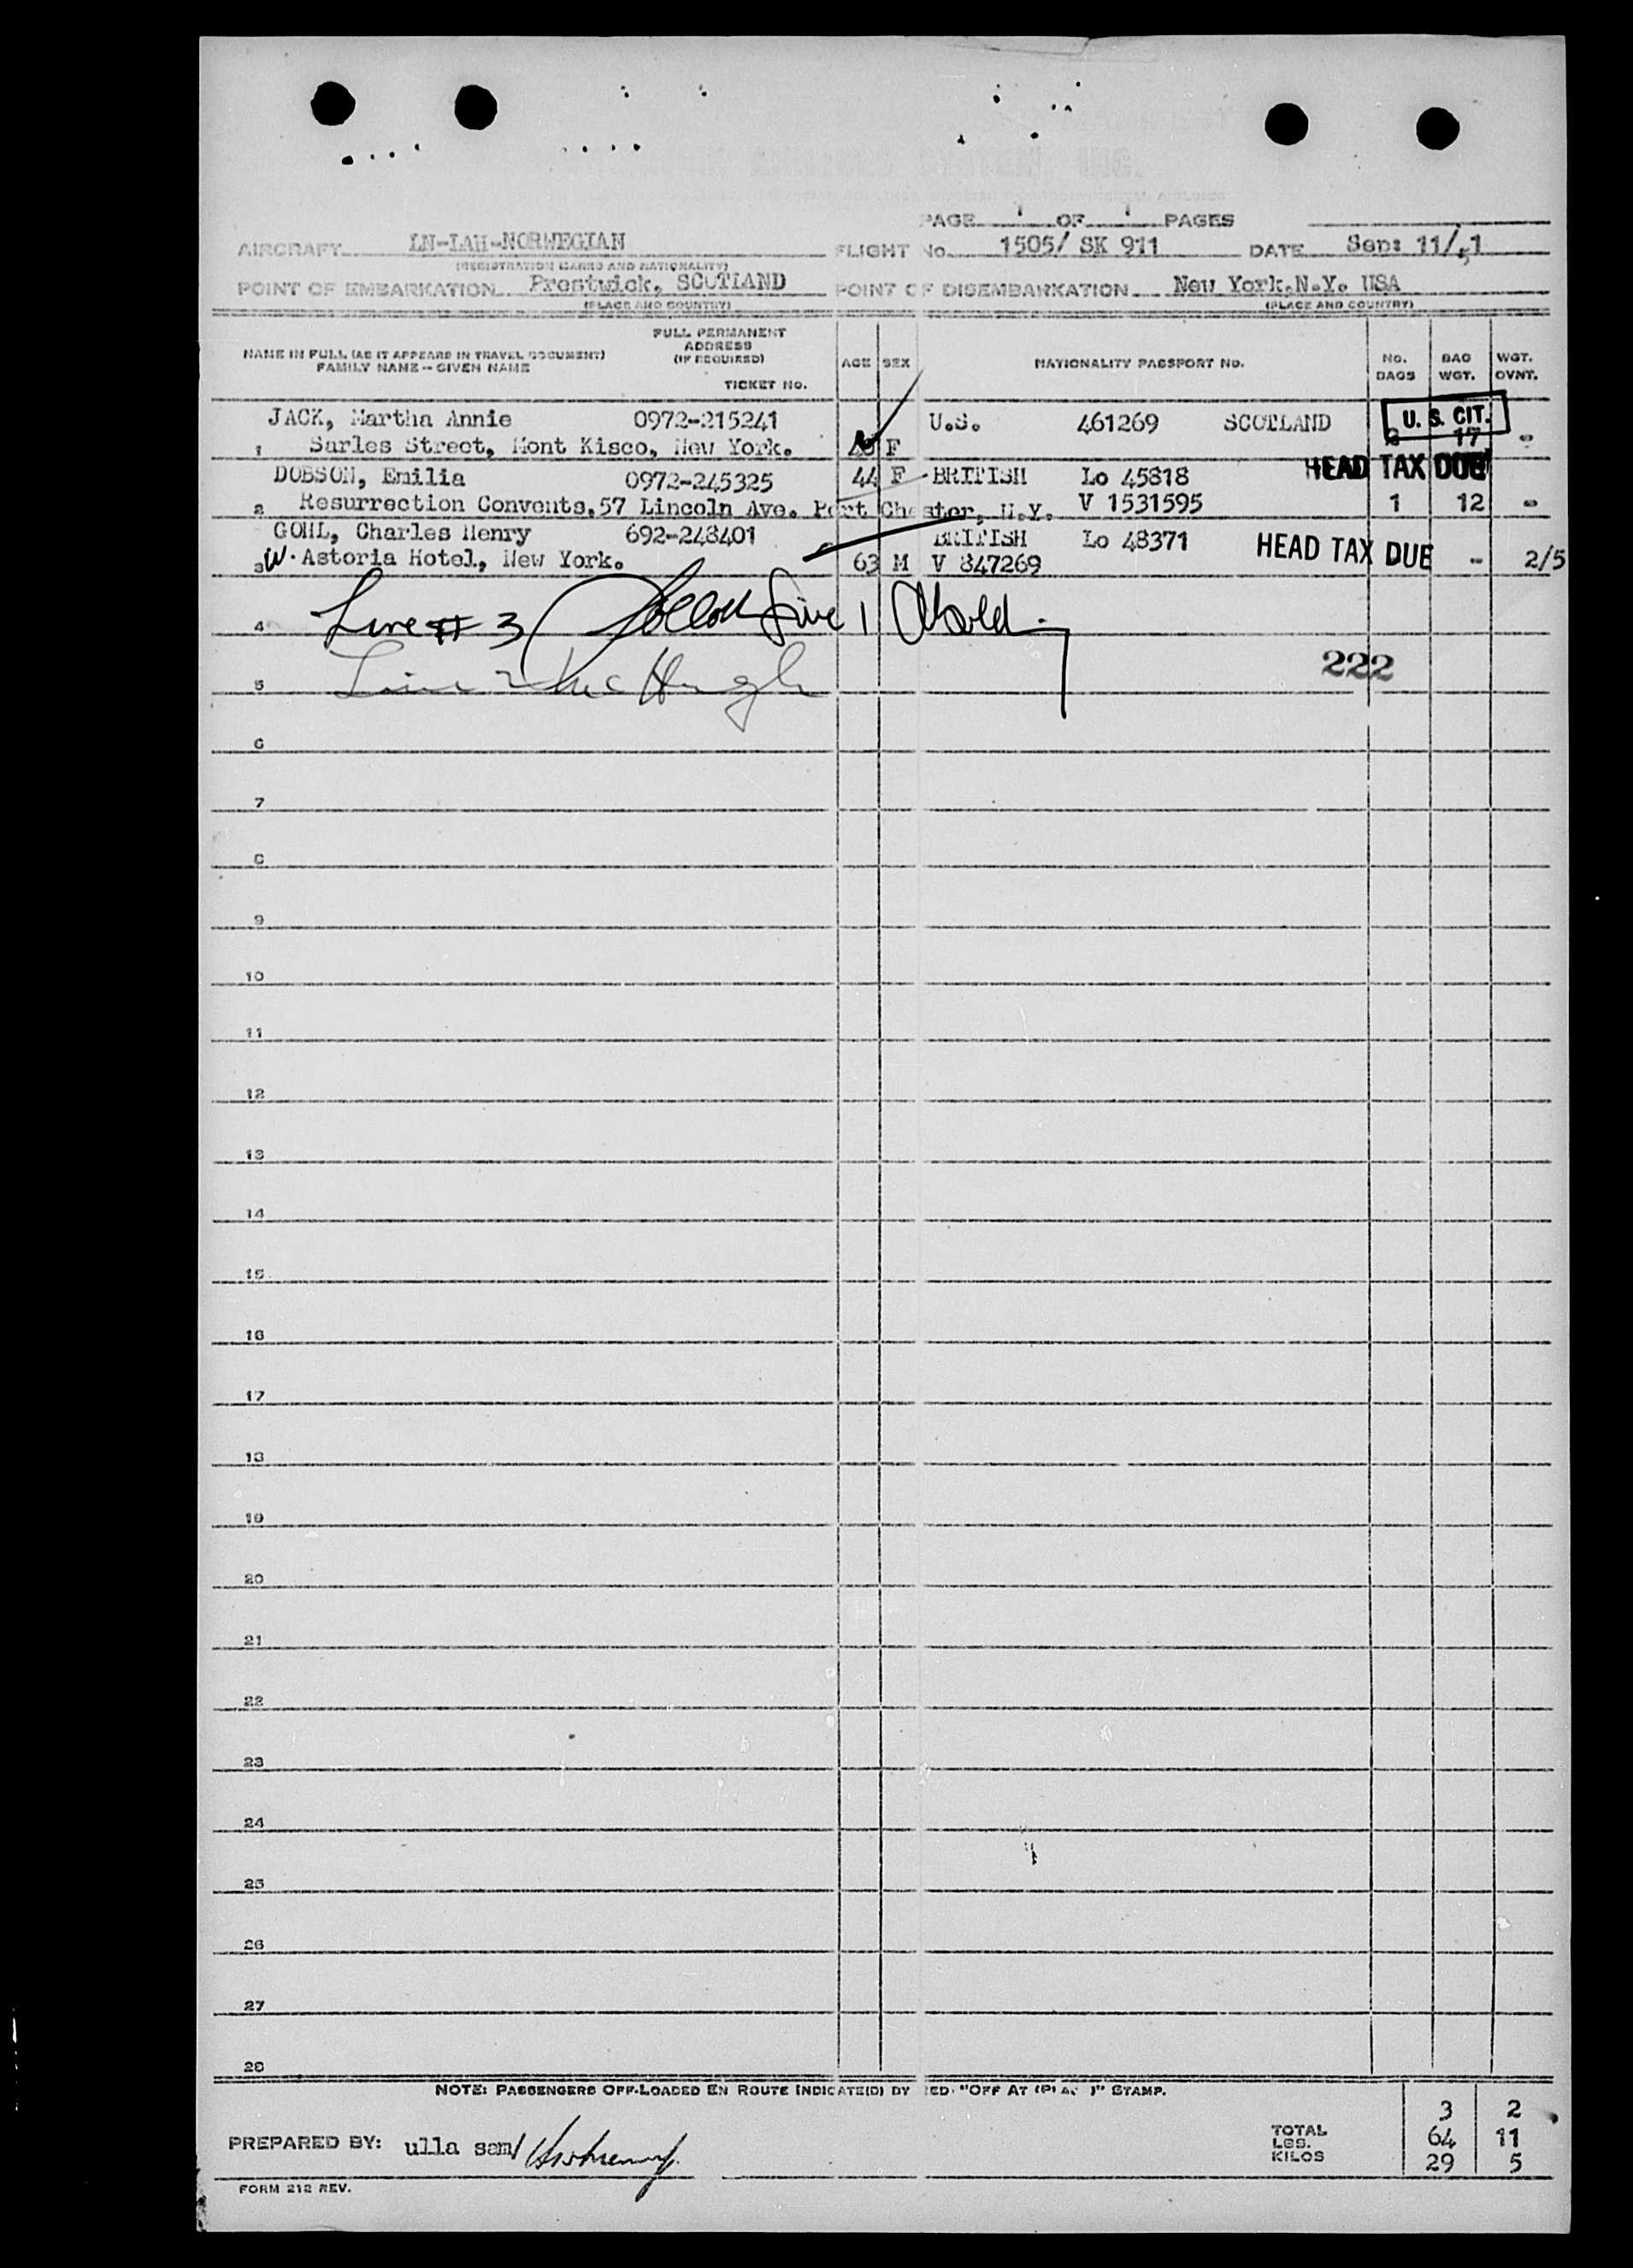 PAGE 1 OF 1 PAGES
AIRCRAFT LN-LAH-NORWEGIAN FLIGHT No. 1505/ SK 911 DATE Sep: 11/51
(REGISTRATION MARKS AND NATIONALITY)
POINT OF EMBARKATION Prestwick, SCOTLAND POINT OF DISEMBARKATION New York,N.Y. USA
(PLACE AND COUNTRY) (PLACE AND COUNTRY)
NAME IN FULL (AS IT APPEARS IN TRAVEL DOCUMENT) FAMILY NAME -- GIVEN NAME FULL PERMANENT ADDRESS (IF REQUIRED) TICKET No. AGE SEX NATIONALITY PASSPORT No. No. BAGS BAG WGT. WGT. OVNT.
JACK, Martha Annie 0972-215241 U.S. 461269 SCOTLAND U. S. CIT.
1 Sarles Street, Mont Kisco, New York. F 17 -
DOBSON, Emilia 0972-245325 44 F BRITISH Lo 45818 HEAD TAX DUE
2 Resurrection Convents.57 Lincoln Ave. Port Chester, N.Y. V 1531595 1 12 -
GOHL, Charles Henry 692-248401 BRITISH Lo 48371 HEAD TAX DUE
3 W. Astoria Hotel, New York. 63 M V 847269 - 2/5
4 Line # 3 Line 1
5 Line 2 McHugh 222
6
7
8
9
10
11
12
13
14
15
16
17
18
19
20
21
22
23
24
25
26
27
28
NOTE: PASSENGERS OFF-LOADED EN ROUTE INDICATE(D) BY RED "OFF AT (PLACE)" STAMP.
3 2
PREPARED BY: ulla sam/ TOTAL LBS. 64 11
KILOS 29 5
FORM 212 REV.